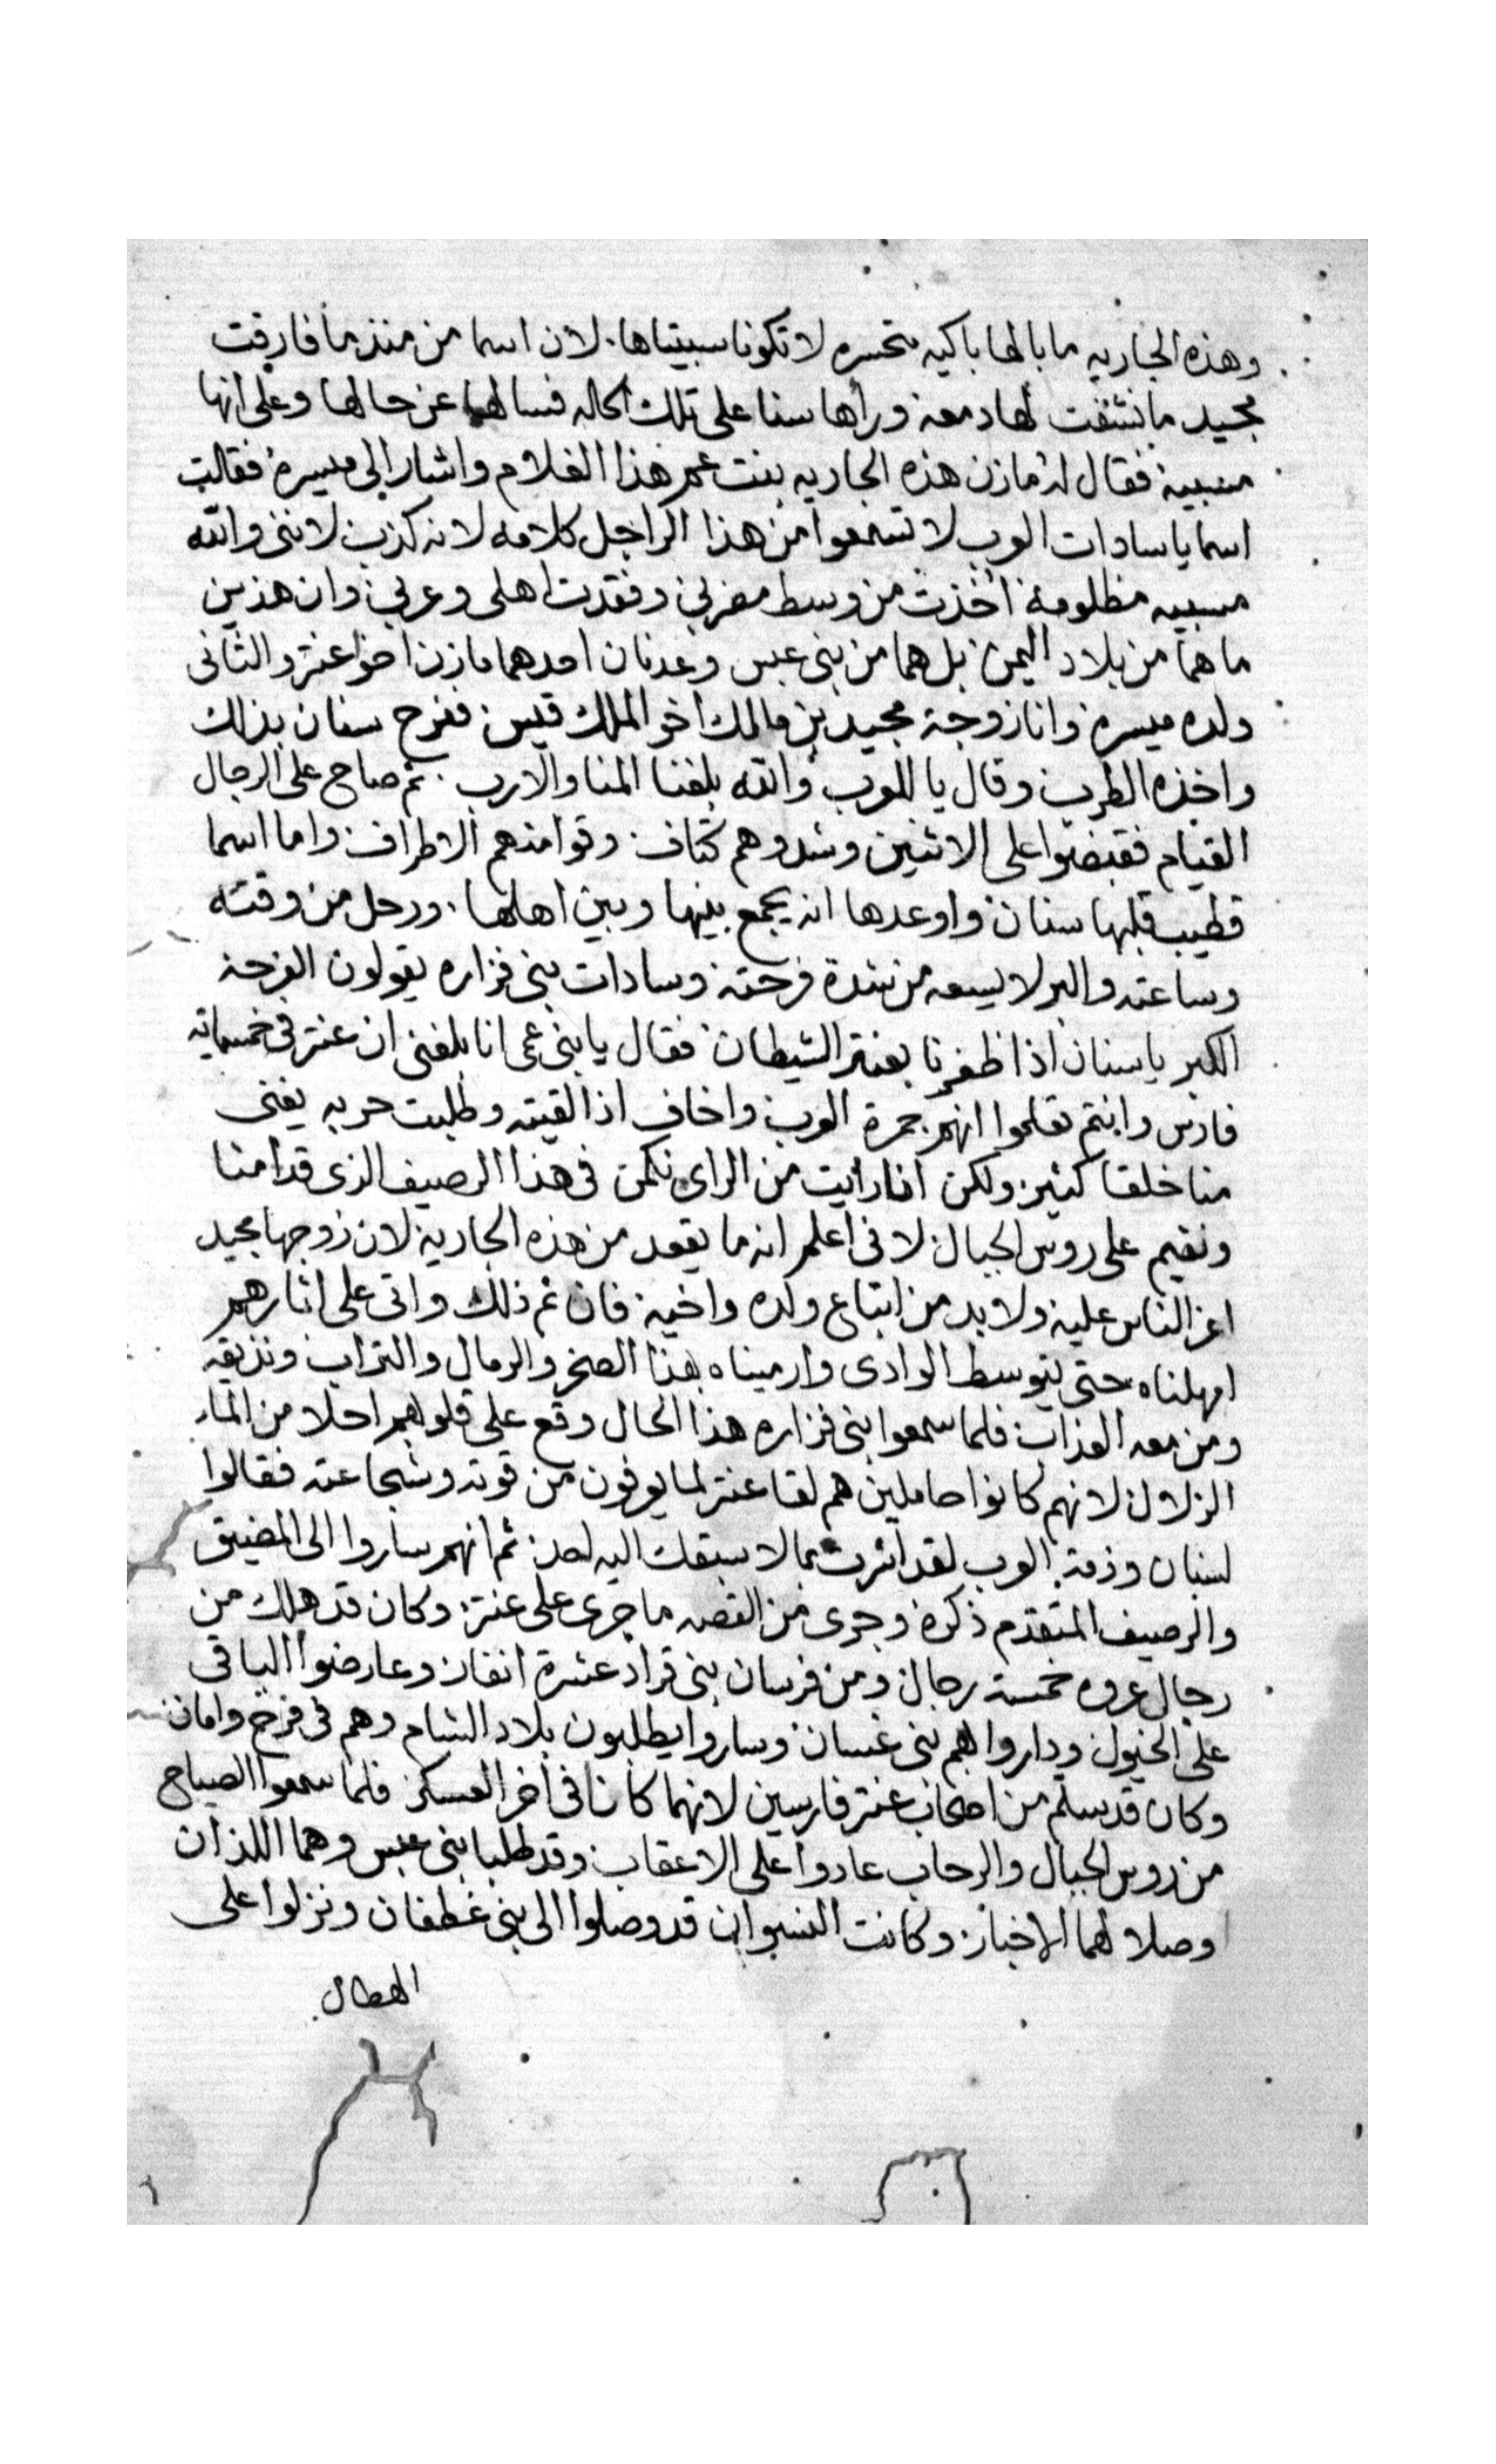 وهذه الجاريه ما بالها باكيه متحسره لا تكونا سبيتاها. لان اسما من منذ ما فارقت
مجيد ما نشفت لها دمعه وراها سنا على تلك الحاله فسالهما عن حالها وعلى انها
مسبية فقال له مازن هذه الجاريه بنت عم هذا الغلام واشار الى ميسرة فقالت
اسما يا سادات العرب لا تسمعوا من هذا الراجل كلامه لانه كذب لانني والله
مسبيه مظلومة اخذت من وسط مضربي وفقدت اهلى وعربي وان هذين
ما هما من بلاد اليمن بل هما من بنى عبس وعدنان احدهما مازن اخو عنتر والثانى
ولده ميسرة وانا زوجة مجيد بن مالك اخو الملك قيس ففرح سنان بذلك
واخذه الطرب وقال يا للعرب والله بلغنا المنا والارب. ثم صاح على الرجال
القيام فقبضوا على الاثنين وشدوهم كتاف وقوا منهم الاطراف واما اسما
فطيب قلبها سنان واوعدها انه يجمع بينها وبين اهلها. ورحل من وقته
وساعته والبر لا يسعه من شدة فرحته وسادات بنى فزاره يقولون الفرحة
الكبر يا سنان اذا ظفرنا بعنتر الشيطان فقال يا بنى عمى انا بلغنى ان عنتر فى خمسمايه
فارس وانتم تعلموا انهم جمرة العرب واخاف اذا لقيته وطلبت حربه يفنى
منا خلقا كثير ولكن انا رايت من الراى نكمن فى هذا الرصيف الذى قدامنا
ونقيم على روس الجبال لانى اعلم انه ما يقعد من هذه الجارية لان زوجها مجيد
اعز الناس عليه ولا بد من اتباع ولده واخيه فان تم ذلك واتى على اثارهم
امهلناه حتى يتوسط الوادى وارميناه بهذا الصخر والرمال والتراب ونذيقه
ومن معه العذاب فلما سمعوا بنى فزاره هذا الحال وقع على قلوبهم احلا من الماء
الزلال لانهم كانوا حاملين هم لقا عنتر لما يعرفون من قوته وشجاعته فقالوا
لسنان وذمة العرب لقد اشرت بما لا سبقك اليه احد ثم انهم ساروا الى المضيق
والرصيف المتقدم ذكره وجرى من القصه ما جرى على عنتر وكان قد هلك من
رجال عروه خمسة رجال ومن فرسان بنى قراد عشرة انفار وعارضوا الباقى
على الخيول وداروا بهم بنى غسان وساروا يطلبون بلاد الشام وهم فى فرح وامان
وكان قد سلم من اصحاب عنتر فارسين لانهما كانا فى اخر العسكر فلما سمعوا الصياح
من روس الجبال والرحاب عادوا على الاعقاب وقد طلبا بنى عبس وهما اللذان
وصلا لهما الاخبار وكانت النسوان قد وصلوا الى بنى غطفان ونزلوا على